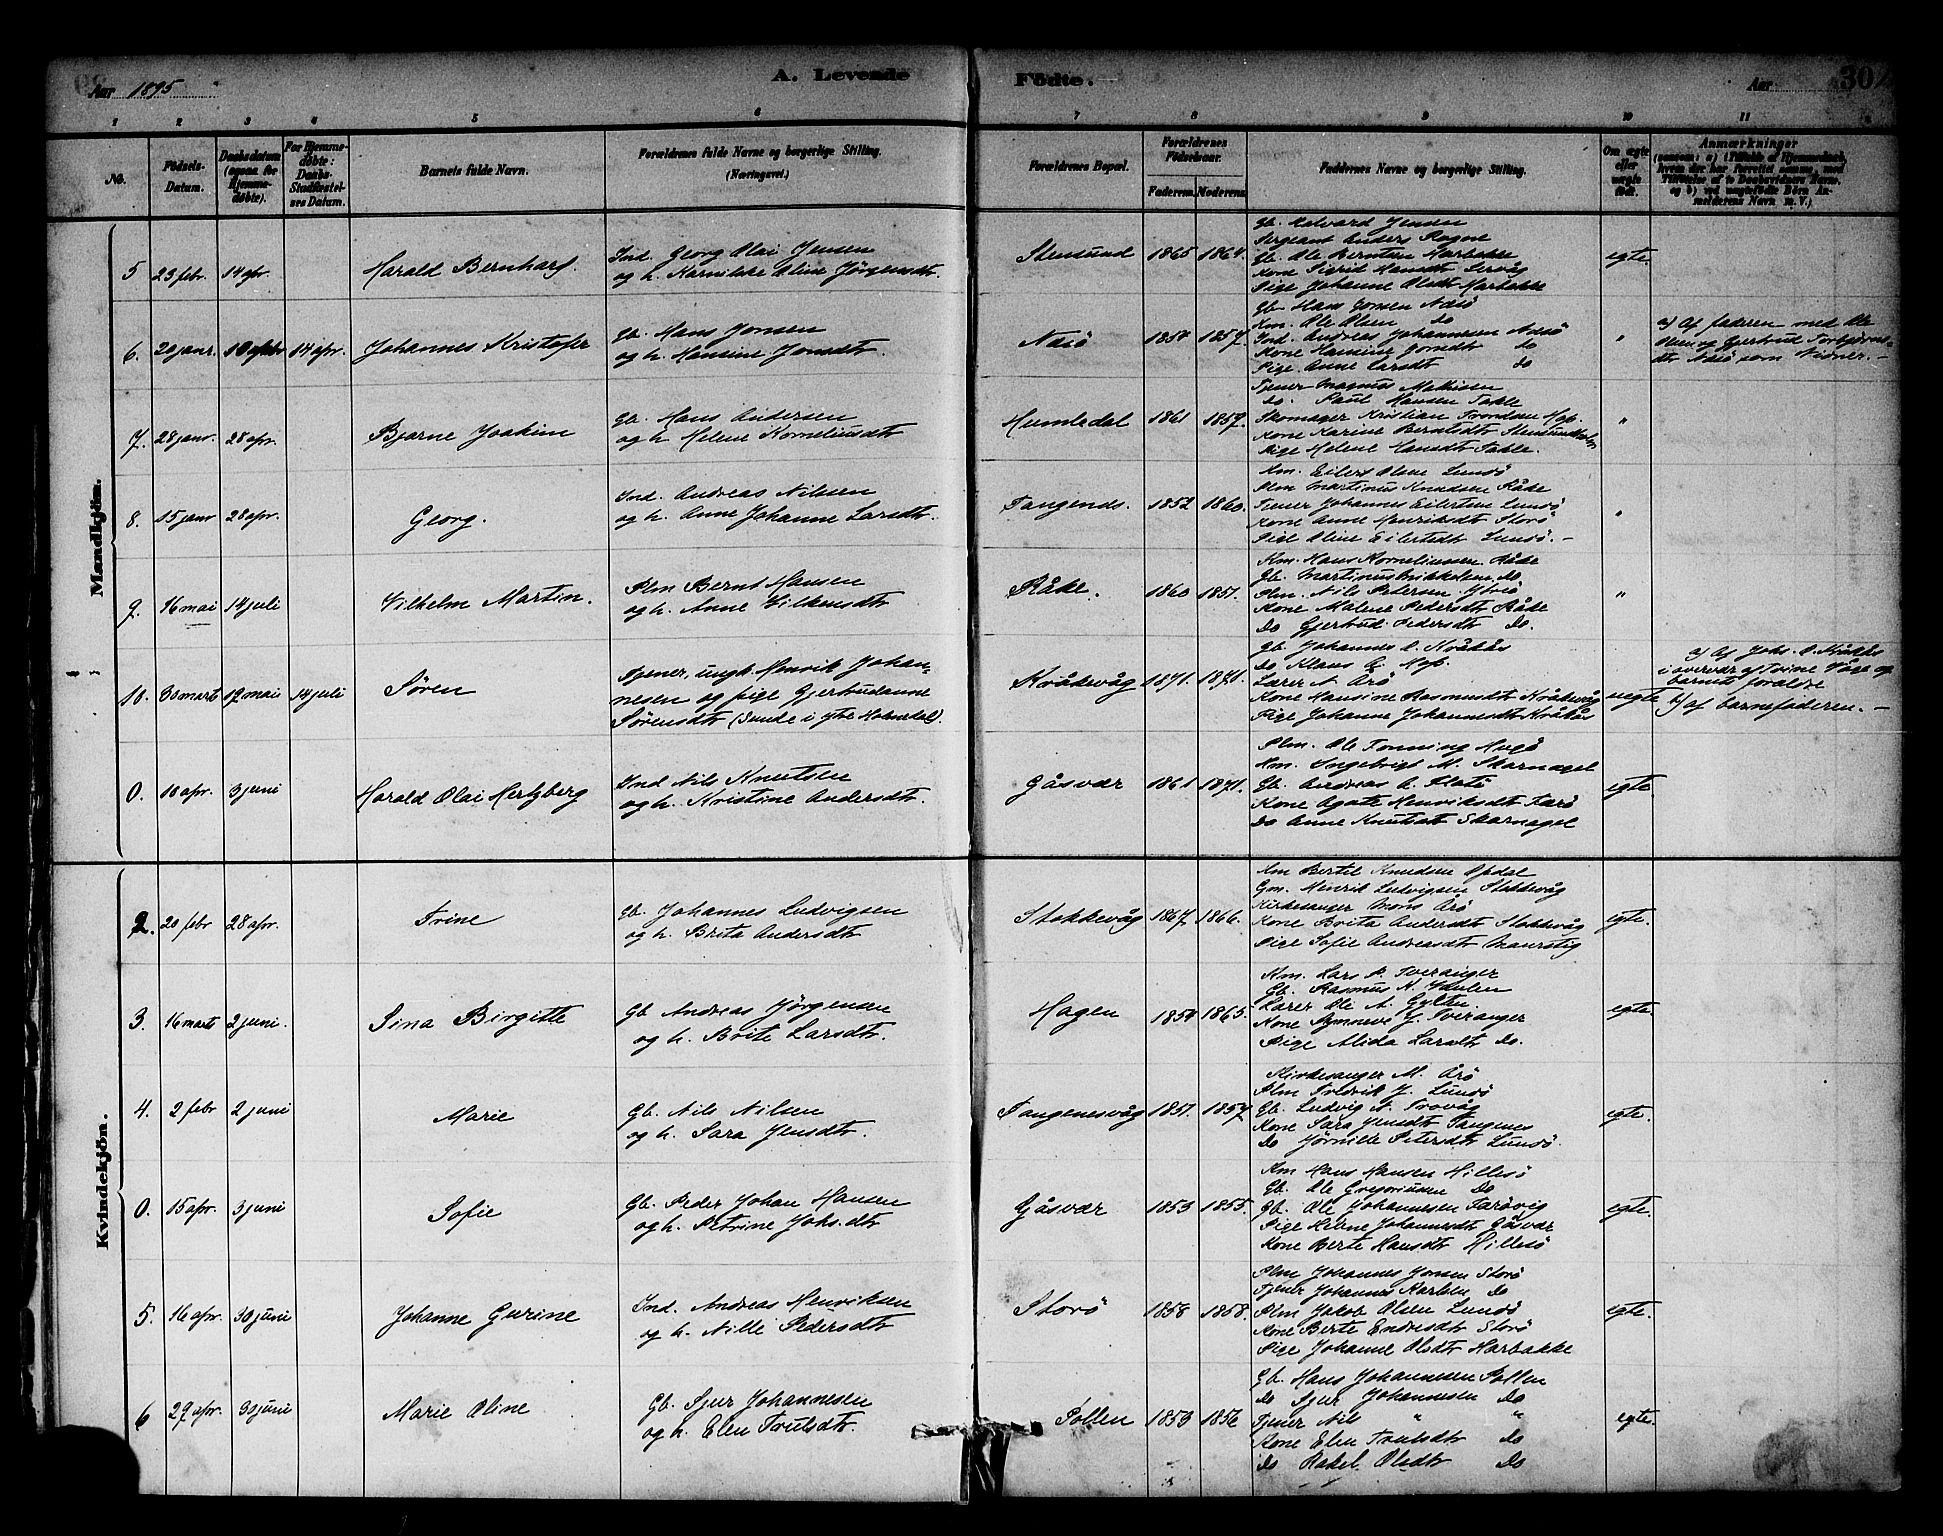 Aar 1895
A. Levende
Födte.
Aar
30
1 2 3 4 5 6 7 8 9 10 11
No.
Födsels-Datum.
Daabsdatum (ogsaa for Hjemmedöbte).
For Hjemmedöbte: Daabs-Stadfæstelses Datum.
Barnets fulde Navn.
Forældrenes fulde Navne og borgerlige Stilling. (Næringsvei.)
Forældrenes Bopæl.
Forældrenes Födselsaar.
Faderens. Moderens.
Faddernes Navne og borgerlige Stilling.
Om ægte eller uægte födt.
Anmærkninger
Mandkjön.
5 23 febr. 14 apr. Harald Bernhard.
Ind. Georg Olai Jensen
og h. Oline Jörgensdtr.
Stensund 1865 1864.
Gb. Halvard Jensen
Sergeant Anders Rogne
Gb. Ole Berntsen Harbakke
Kone Sigrid Hansdtr Leråg
Pige Johanne Olsdtr Harbakke
egte.
6. 20 janr. 14 apr. Johannes Kristofer
Gb. Hans Jonsen
og h. Hansine Jonsdtr.
Nåsö 1854 1857.
Gb. Hans Jonsen Nåsö
Km. Ole Olsen do
Ind. Andreas Johannesen Nåsö
Kone Hansine Jonsdtr do
Pige Anne Larsdtr do
"
a) Af faderen med Ole
Olsen og Gjertrud Torbjörns-
dtr Nåsö som Vidner. -
7. 28 janr. 28 apr. Bjarne Joakim
Gb. Hans Andersen
og h. Helene Korneliusdtr
Humledal 1861 1857.
Tjener Magnus Mathisen
do. Paul Hansen Takle
Skomager Kristian Trondsen Hop.
Kone Karine Berntsdtr Stensundholm
Pige Helene Hansdtr Takle.
"
8. 15 janr 28 apr. Georg.
Ind. Andreas Nilsen
og h. Anne Johanne Larsdtr.
Tangends. 1852 1860.
Km. Eilert Olsen Lunsö
Plm Martinus Knudsen Råke
Tjener Johannes Eilertsen Lunsö
Kone Anne Henriksdtr Storö
Pige Oline Eilertsdtr Lunsö. -
"
9. 16 mai 14 juli Vilhelm Martin.
Plm Bernt Hansen
og h. Anne Vilhensdtr
Råke. 1860 1851.
Km. Hans Korneliussen Råke
Gb. Martinus do
Plm. Nils Petersen Ytrö
Kone Malene Pedersdtr Råke
Do Gjertrud Pedersdtr Do.
"
10. 30 marts 19 mai 14 juli Sören
Tjener, ungk. Henrik Johan-
nesen og pige Gjertrudanne
Sörensdtr (Sunde i ytre Holmedal).
Kråkevåg 1871. 1871.
Gb Johannes O. Kråkås
Do Klaus Hop.
Lærer A. Årö
Kone Hansine Rasmusdtr Kråkevåg
Pige Johanne Johannesdtr Kråkås
uegte
a) Af Johs. O. Kråkås
i overvær af Trine Våge og
barnets forældre
b) af barnefaderen. -
0. 10 apr. 3 juni Harald Olai Hertzberg
Ind Nils Knutsen
og h. Kristine Andersdtr.
Gåsvær 1861 1871.
Plm. Ole Tonning Hugö
Km. Ingebrigt M. Skarnagel
Gb. Andreas A. Flatö
Kone Agate Henriksdtr Farö
Do Anne Knutsdtr Skarnagel
egte.
Kvindekjön.
2. 20 febr 28 apr. Trine
Gb. Johannes Ludvigsen
og h. Brita Andersdtr
Stokkevåg 1867 1866.
Km Bertel Knudsen Opdal
Gm. Henrik Ludvigsen Stokkevåg
Kirkesanger Mons Årö
Kone Brita Andersdtr Stokkevåg
Pige Sofie Andreasdtr Maurstig
egte.
3. 16 marts 2 juni. Sina Birgitte
Gb Andreas Jörgensen
og h. Brite Larsdtr.
Hagen 1854 1865.
Km. Lars P. Tveranger
Gb. Rasmus A.
Lærer Ole A. Gylten.
Kone Synneve J. Tveranger
Pige Alida Larsdtr Do.
egte.
4. 2 febr 2 juni Marie
Gb. Nils Nilsen
og h. Sara Jensdtr.
Tangenesvåg 1851. 1857.
Kirkesanger M. Årö
Plm Fredrik J. Lunsö
Gb. Ludvig N. Trovåg
Kone Sara Jensdtr Tangenes
Do Jörnille Petersdtr Lunsö.
egte.
0. 15 apr. 3 juni Sofie
Gb. Peder Johan Hansen
og h. Petrine Johs.dtr
Gåsvær 1853 1855.
Km Hans Hansen Hillesö
Gb. Ole Gregoriussen Do
Gb. Ole Johannesen Farövig
Pige Helene Johannesdtr Gåsvær
Kone Berte Hansdtr Hillesö
egte.
5. 16 apr. 30 juni Johanne Gurine
Ind. Andreas Henriksen
og h. Nille Pedersdtr
Storö 1858 1858.
Plm Johannes Jonsen Storö
Tjener Johannes Karlsen Do
Plm Jakob Olsen Lunsö
Kone Berte Endresdtr Storö
Pige Johanne Olsdtr Harbakke
egte.
6 27 apr. 30 juni Marie Oline
Gb. Sjur Johannesen
og h. Elen Trulsdtr.
Pollen 1853 1856
Gb. Hans Johannesen Pollen
Do Sjur Johannesen Do
Tjener Nils " "
Kone Elen Trulsdtr Do
Do Rakel Olsdtr Do
egte.